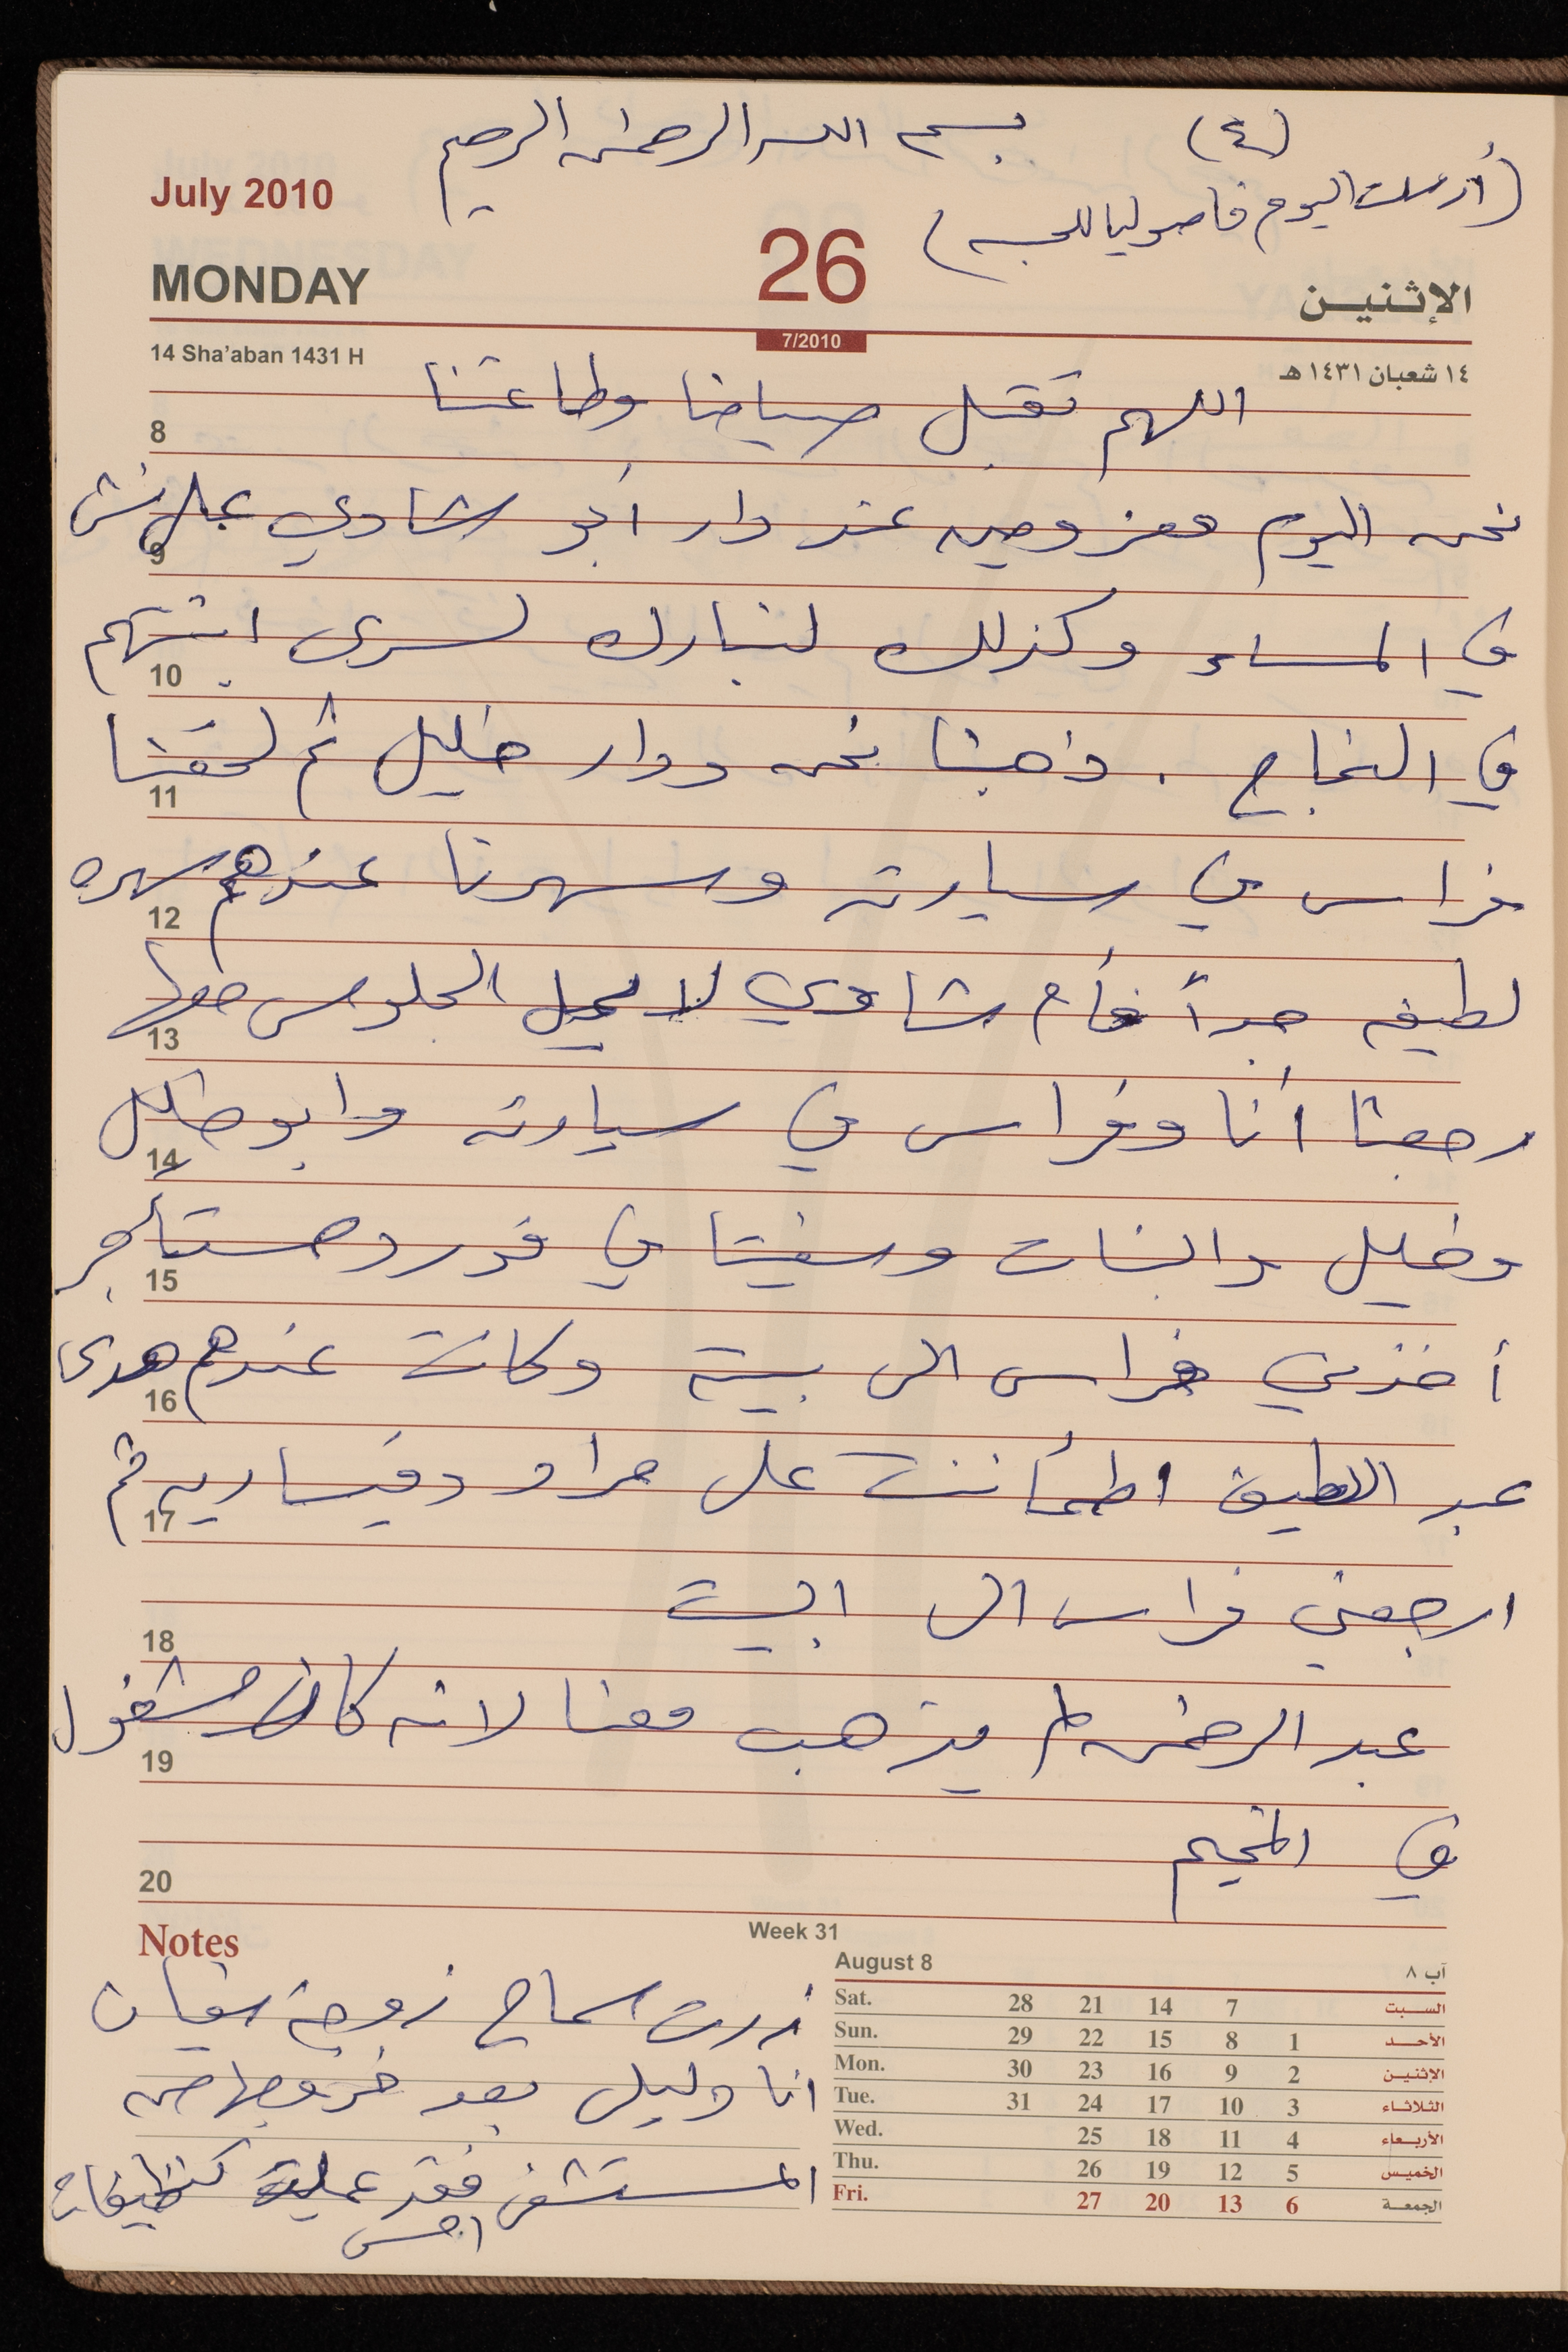 بسم الله الرحمن الرحيم (٤)
(أرسلت اليوم فاصوليا للحسبه)
July 2010
MONDAY 26 الإثنين
14 Sha'aban 1431 H 7/2010 ١٤ شعبان ١٤٣١ هـ
اللهم تقبل صيامنا وطاعتنا
8
نحن اليوم معزومين عند دار أبو شادي
9
في المساء وكذلك لنبارك لسرى ابنتهم
10
في النجاح . ذهبنا نحن ودار خليل ثم لحقنا
11
فراس في سيارته وسهرنا عندهم سهره
12
لطيفه جداً فأم شادي لا يمل الجلوس معها
13
رجعنا أنا وفراس في سيارته وابو خليل
14
وخليل والبنات وسفيتا في فورد مستأجر
15
أخذني فراس الى بيته وكانت عندهم هدى
16
عبد اللطيف اطمأننت على مراد وقيساريه ثم
17
ارجعني فراس الى البيت
18
عبد الرحمن لم يذهب معنا لانه كان مشغول
19
في المخيم
20
Notes
زرت سماح زوجة سفيان
انا وليلى بعد خروجها من
المستشفى فقد عملت تنظيفات
امس
Week 31
August 8 آب ٨
Sat. 28 21 14 7 السبت
Sun. 29 22 15 8 1 الأحد
Mon. 30 23 16 9 2 الإثنين
Tue. 31 24 17 10 3 الثلاثاء
Wed. 25 18 11 4 الأربعاء
Thu. 26 19 12 5 الخميس
Fri. 27 20 13 6 الجمعة